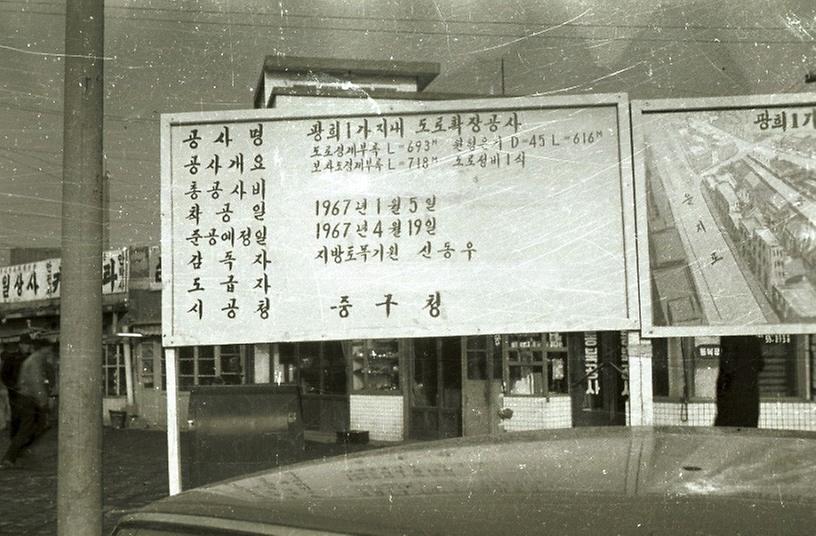 공사명 광희1가지내 도로확장공사
공사개요 도로경계부록 L=693M D=45 L=616M
보차도경계부록 L=718M 도로설비1식
총공사비
착공일 1967년 1월 5일
준공예정일 1967년 4월 19일
감독자 지방토목기원 신동우
도급자
시공청 중구청
광희1가
을지로
일상사